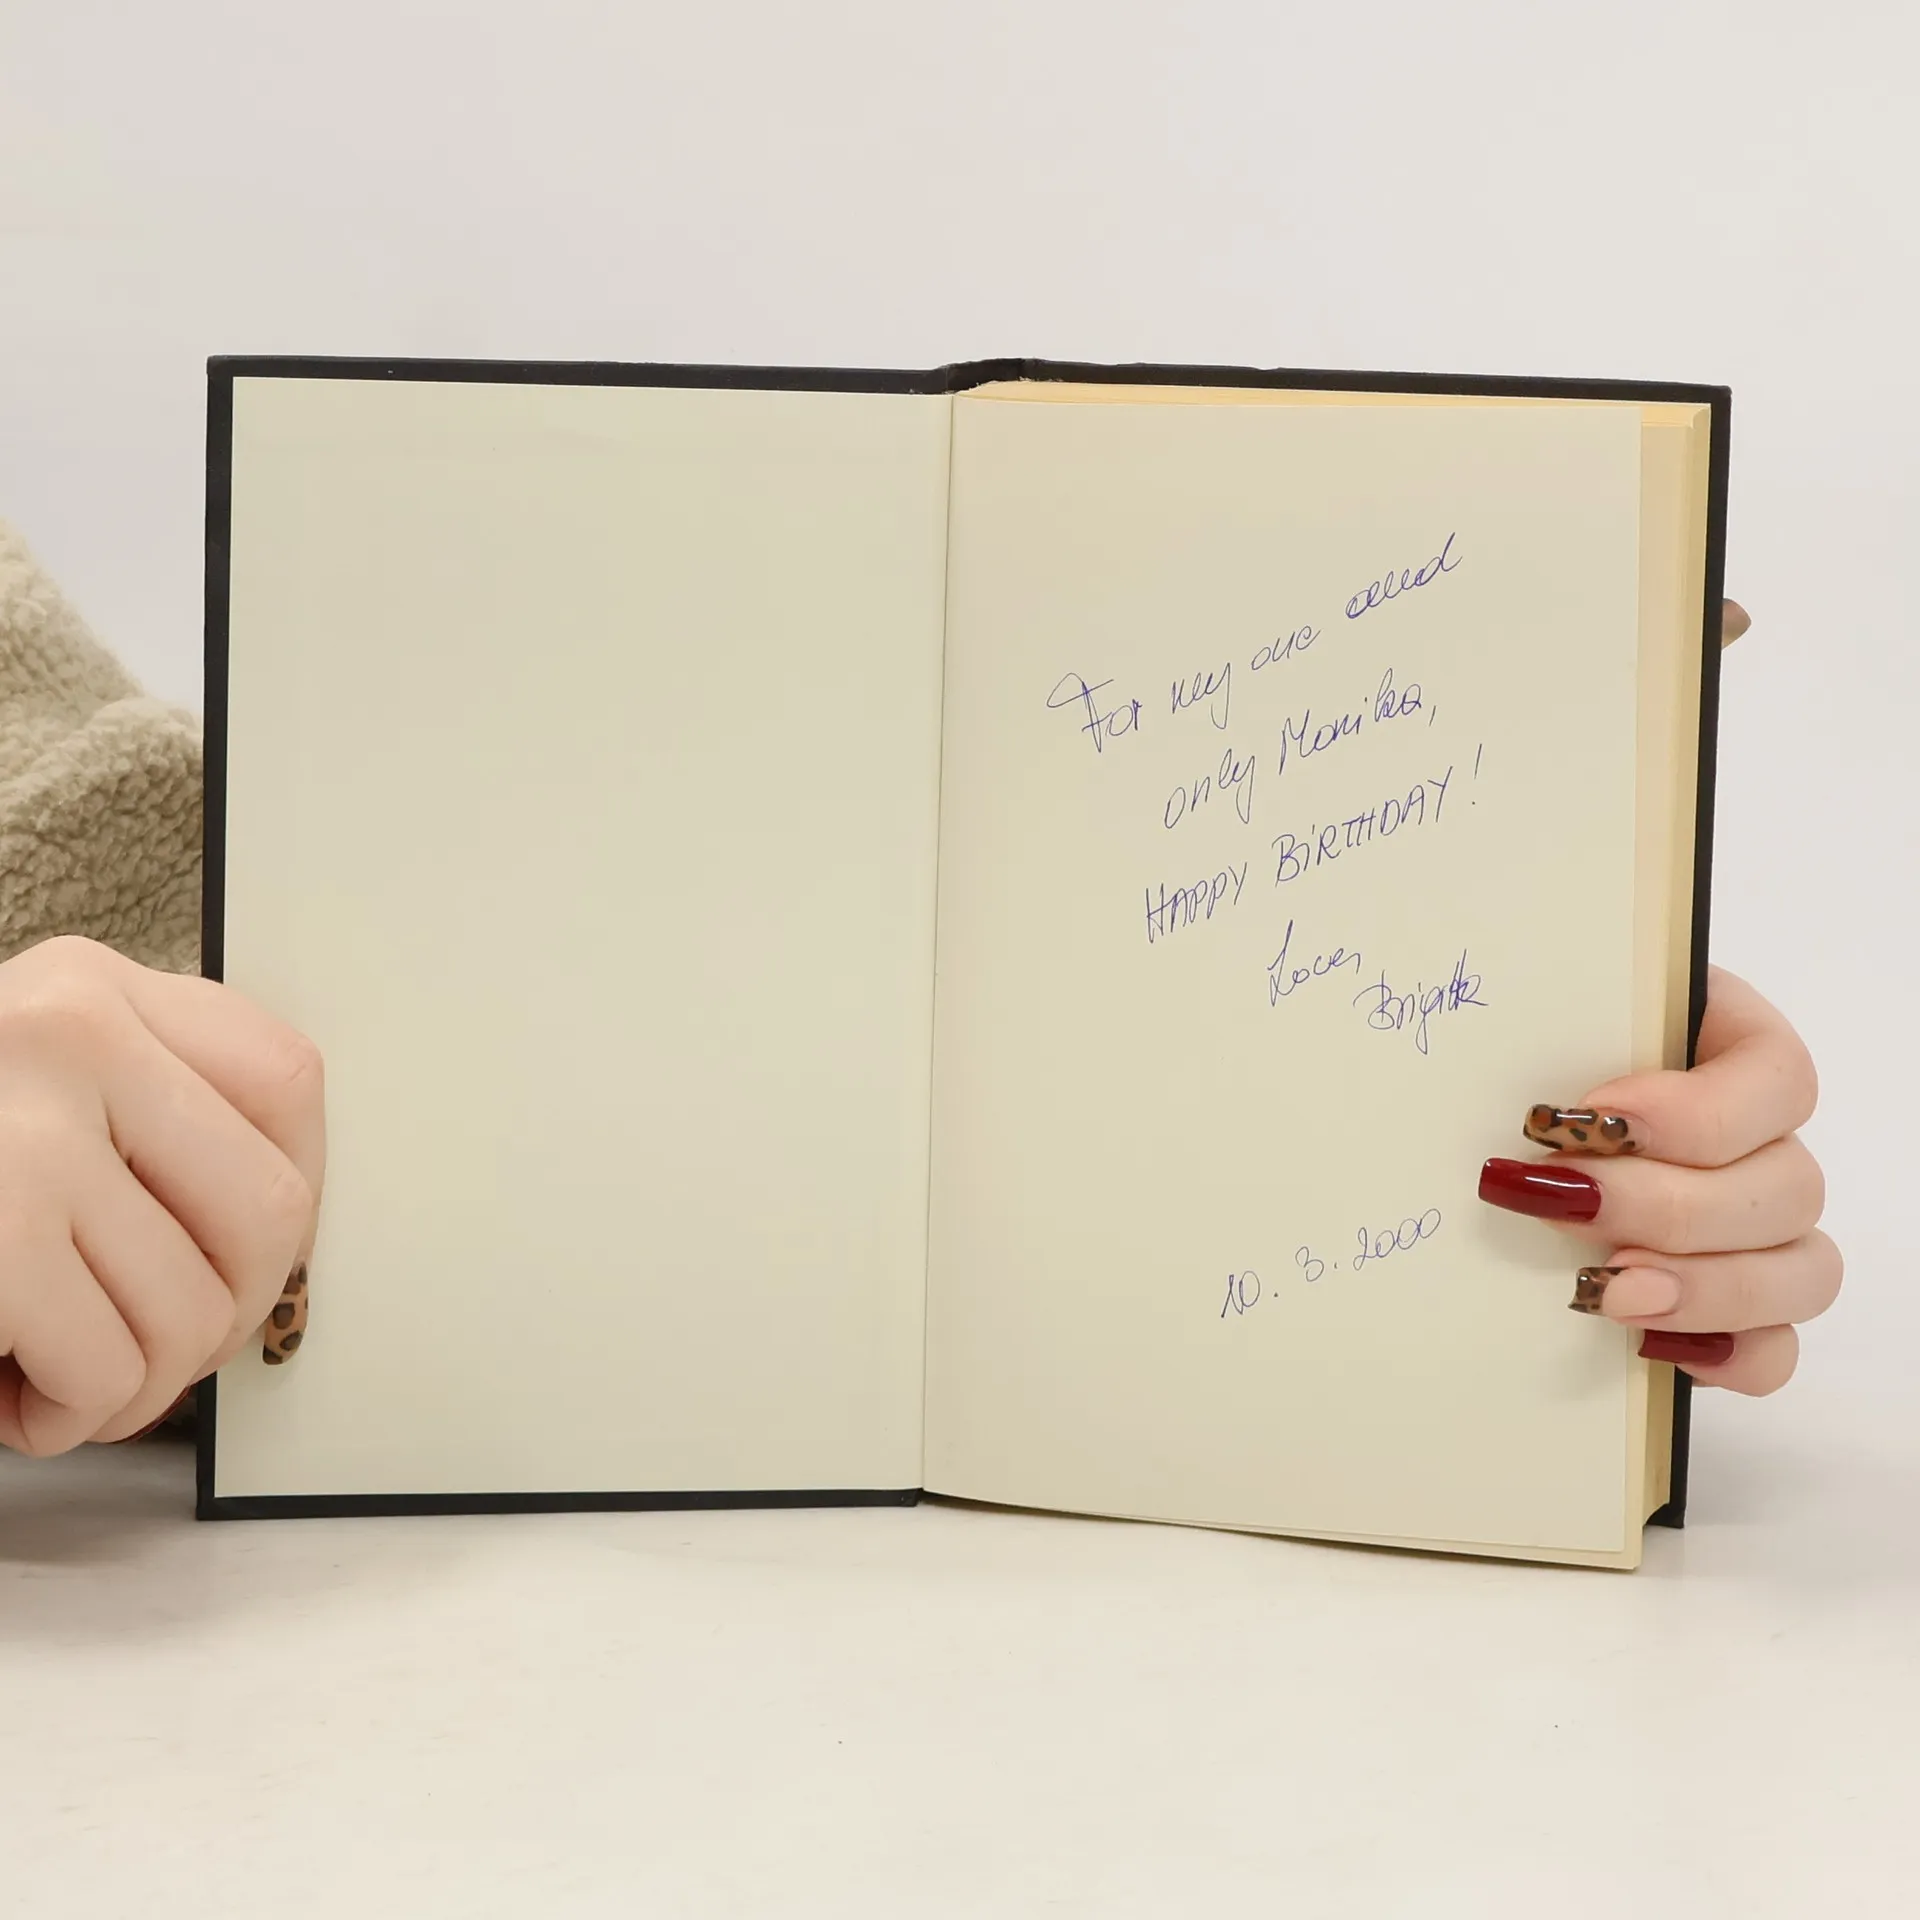 For my one and
only Monika,
HAPPY BIRTHDAY!
Love,
Brigitta
10. 3. 2000